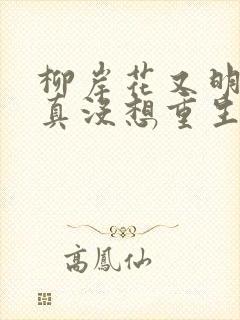 柳岸花又明
真没想重生
高鳳仙